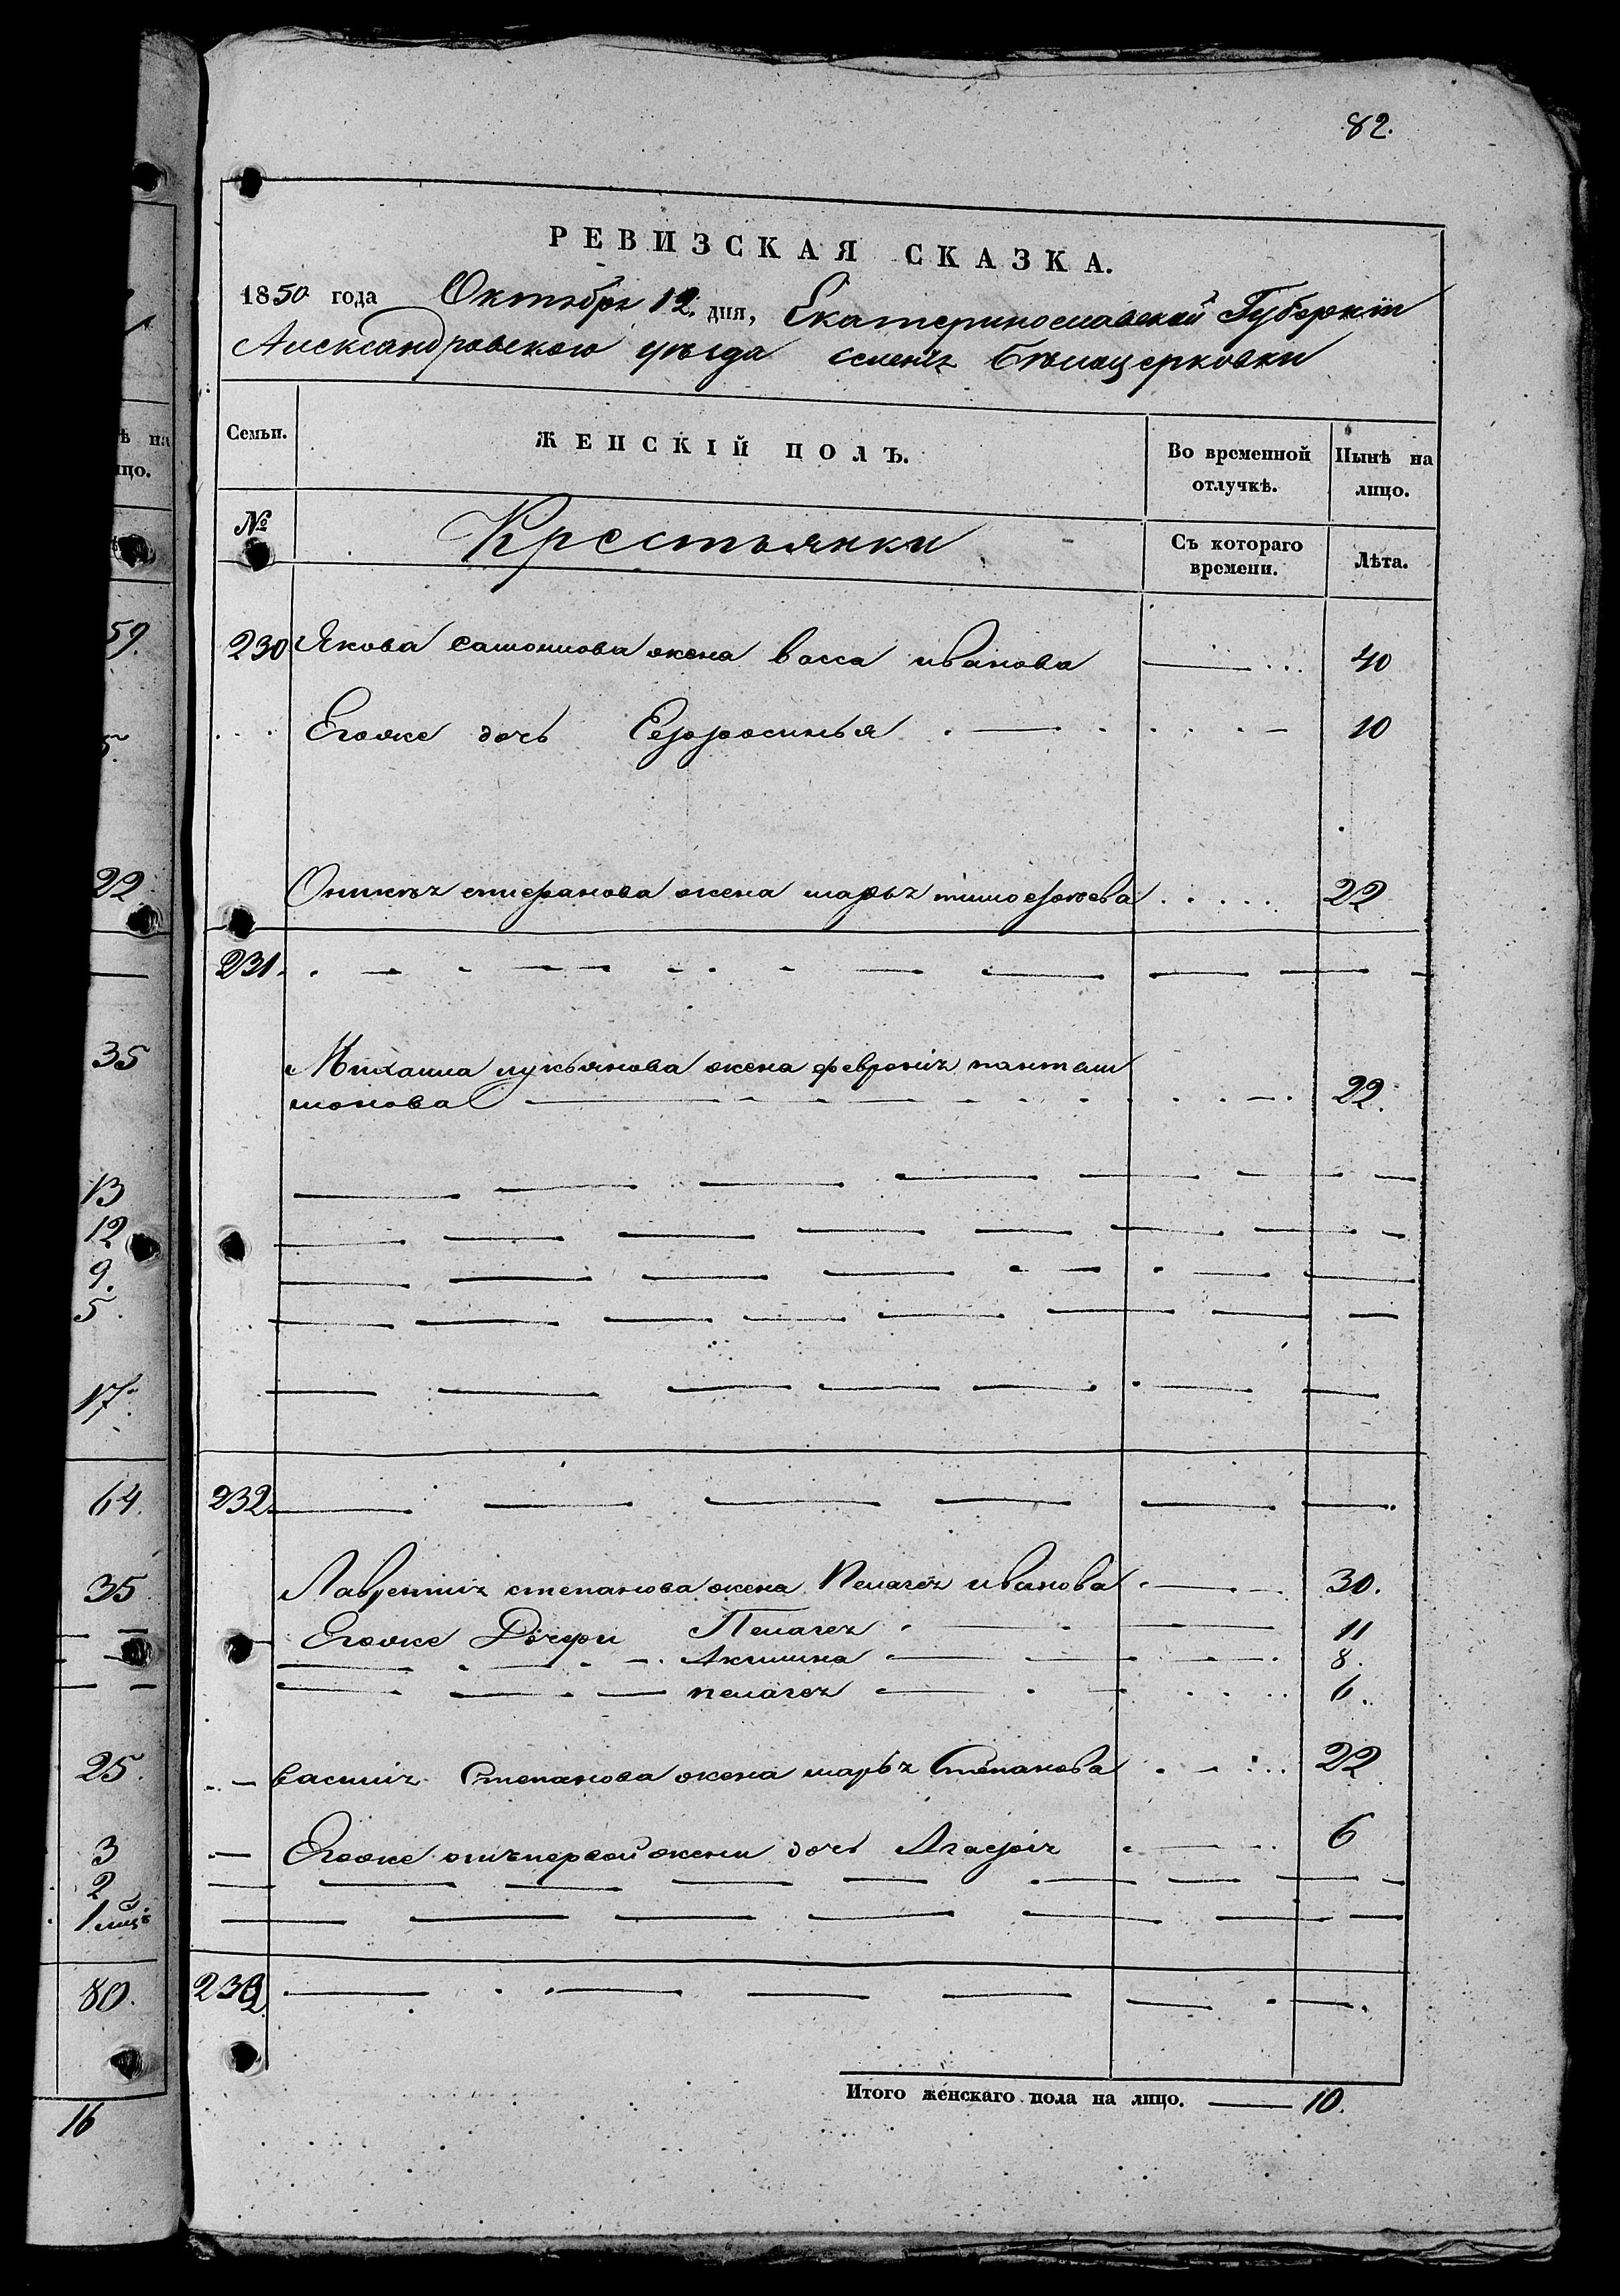 82.
РЕВИЗСКАЯ СКАЗКА.
1850 года Октября 12. дня, Екатеринославской Губернiи
Александровскаго уѣзда селенiя Бѣлоцерковки
Семьи.
ЖЕНСКIЙ ПОЛЪ.
Во временной отлучкѣ.
Нынѣ на лицо.
№
Крестьянки
Съ котораго времени.
Лѣта.
230 Якова Самойлова жена васса иванова 40
Егоже дочь Ефросинья 10
стефанова жена марья тимофѣева 22
231.
Михаила лукьянова жена февронiя пантели
монова 22.
232
Лаврентiя степанова жена Пелагея иванова 30.
Егоже Дочери Пелагея 11
Акилина 8.
пелагея 6.
василiя Степанова жена марья Степанова 22
Егоже отъ первой жены дочь Агафiя 6
233
Итого женскаго пола на лицо. 10.
ѣ на
ицо.
59.
5.
22
35
13
12
9.
5.
17.
64.
35
25.
3
2
1
80.
16